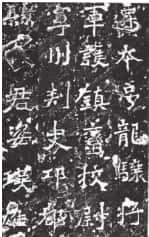 遷本号龍驤將
軍護鎮蠻校尉
寧州刺史邛都
縣侯君姿瑛雄